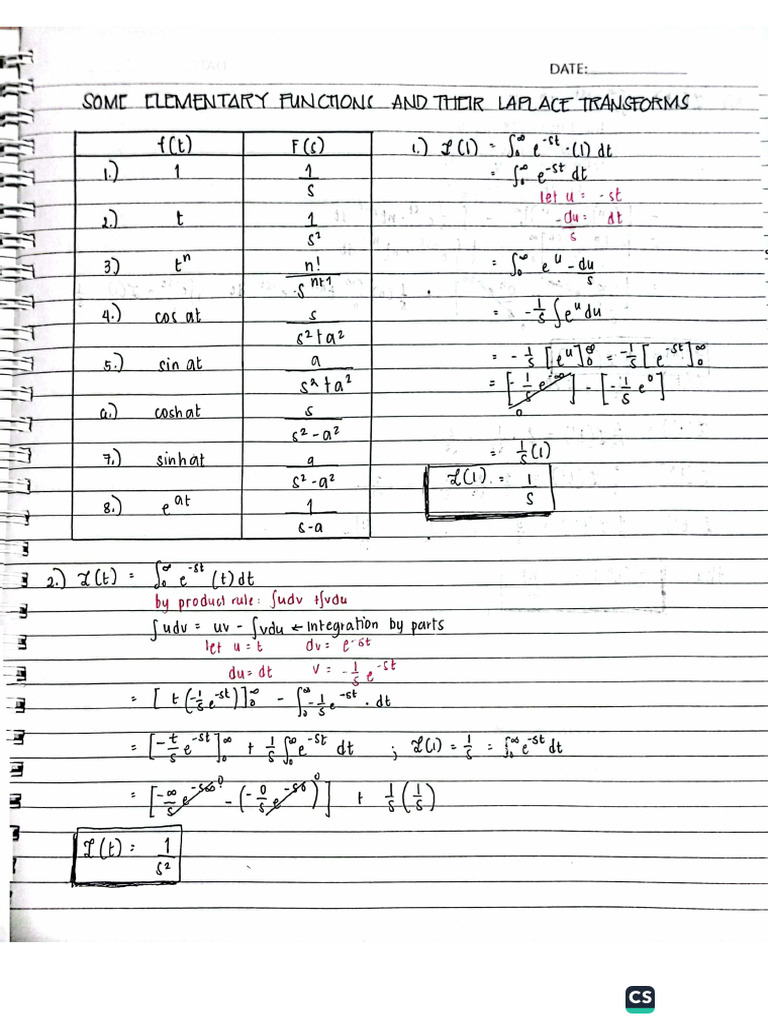 DATE:
SOME ELEMENTARY FUNCTIONS AND THEIR LAPLACE TRANSFORMS
f(t) F(s)
1.) 1 1/s
2.) t 1/s²
3) tⁿ n!/sⁿ⁺¹
4.) cos at s/(s²+a²)
5.) sin at a/(s²+a²)
6.) coshat s/(s²-a²)
7.) sinhat a/(s²-a²)
8.) e^at 1/(s-a)
1.) ℒ(1) = ∫₀^∞ e^-st · (1) dt
= ∫₀^∞ e^-st dt
let u = -st
-du/s = dt
= ∫₀^∞ e^u -du/s
= -1/s ∫e^u du
= -1/s [e^u]₀^∞ = -1/s [e^-st]₀^∞
= [-1/s e^-∞] - [-1/s e^0]
0
= 1/s (1)
ℒ(1) = 1/s
2.) ℒ(t) = ∫₀^∞ e^-st (t) dt
by product rule: ∫udv +∫vdu
∫udv = uv - ∫vdu ← integration by parts
let u = t dv = e^-st
du = dt v = -1/s e^-st
= [t(-1/s e^-st)]₀^∞ - ∫₀^∞ -1/s e^-st · dt
= [-t/s e^-st]₀^∞ + 1/s ∫₀^∞ e^-st dt ; ℒ(1) = 1/s = ∫₀^∞ e^-st dt
= [-∞/s e^-s∞ 0 - (-0/s e^-s0) 0] + 1/s (1/s)
ℒ(t) = 1/s²
CS